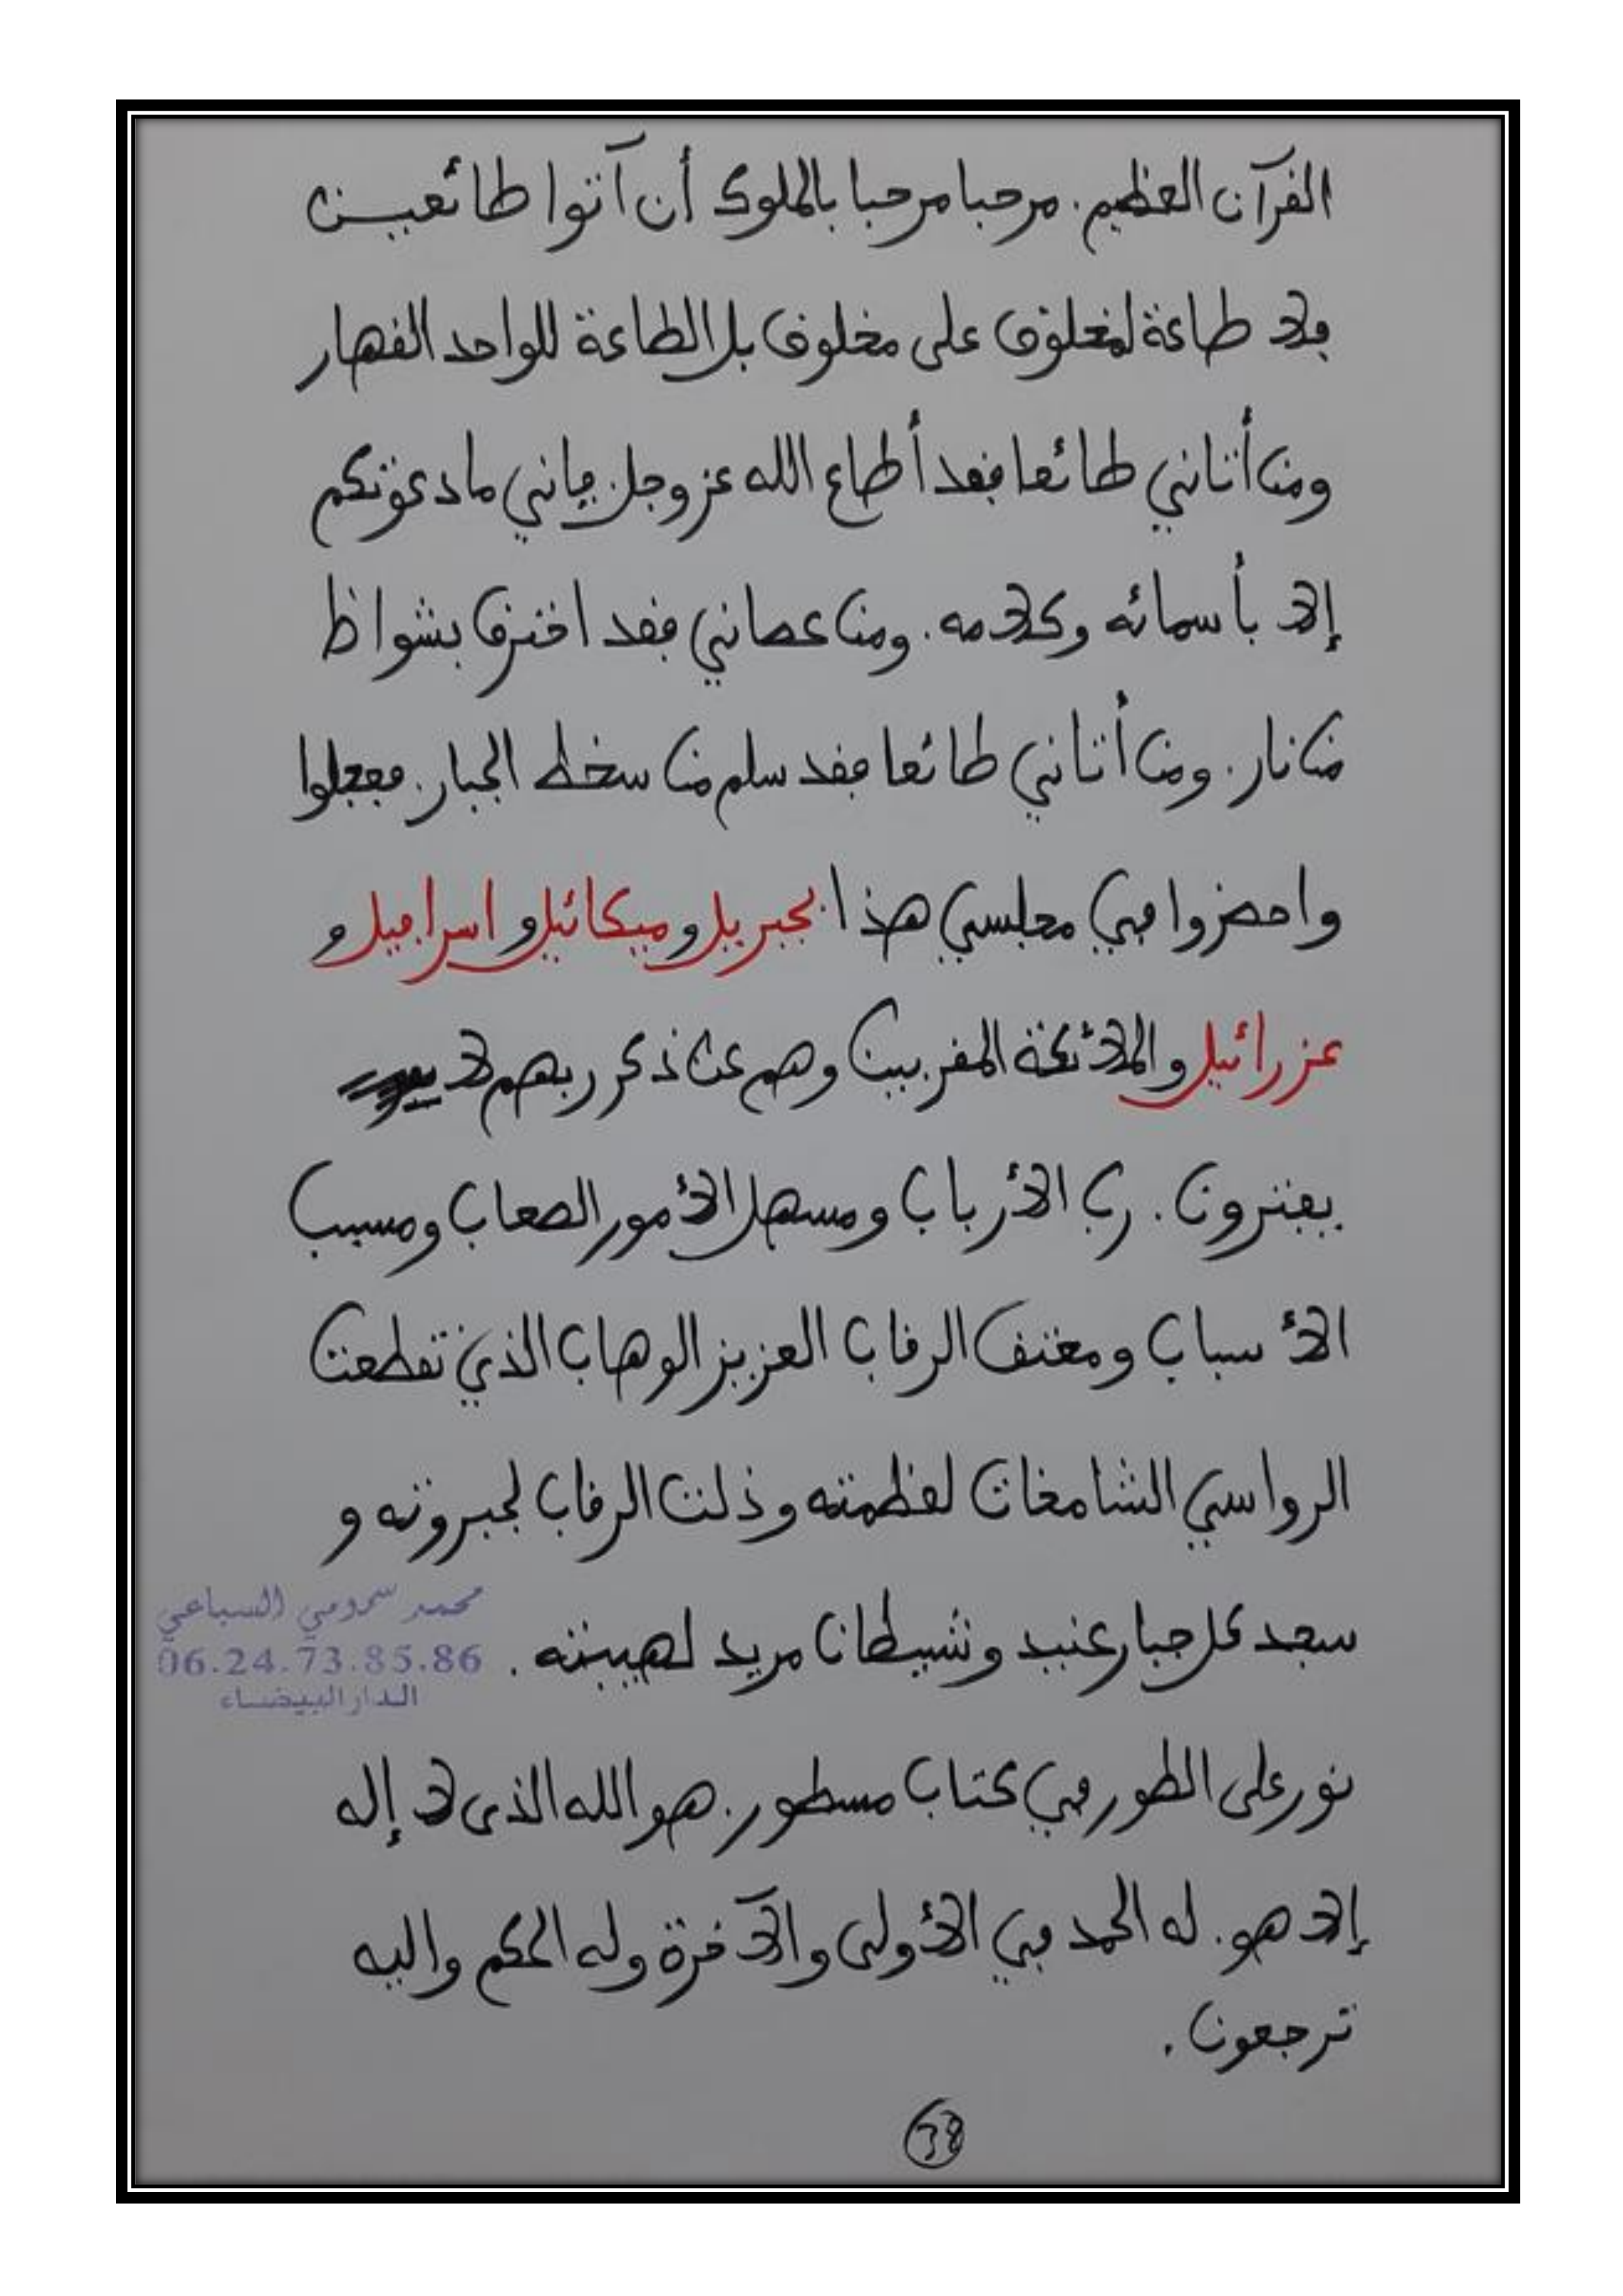 القرآن العظيم. مرحبا مرحبا بالملوك أن آتوا طائعين
فلا طاعة لمخلوق على مخلوق بل الطاعة للواحد القهار
ومن أتاني طائعا فقد أطاع الله عز وجل. فإني ما دعوتكم
إلا بأسمائه وكلامه. ومن عصاني فقد احترق بشواظ
من نار. ومن أتاني طائعا فقد سلم من سخط الجبار. فعجلوا
واحضروا في مجلسي هذا. بجبريل وميكائيل واسرافيل و
عزرائيل والملائكة المقربين وهم عن ذكر ربهم لا
يفترون. رب الأرباب ومسهل الأمور الصعاب ومسبب
الأسباب ومعتق الرقاب العزيز الوهاب الذي تقطعت
الرواسي الشامخات لعظمته وذلت الرقاب لجبروته و
سجد كل جبار عنيد وشيطان مريد لهيبته.
محمد السباعي
06.24.73.85.86
الدار البيضاء
نور على الطور في كتاب مسطور. هو الله الذي لا إله
إلا هو. له الحمد في الأولى والآخرة وله الحكم واليه
ترجعون.
38